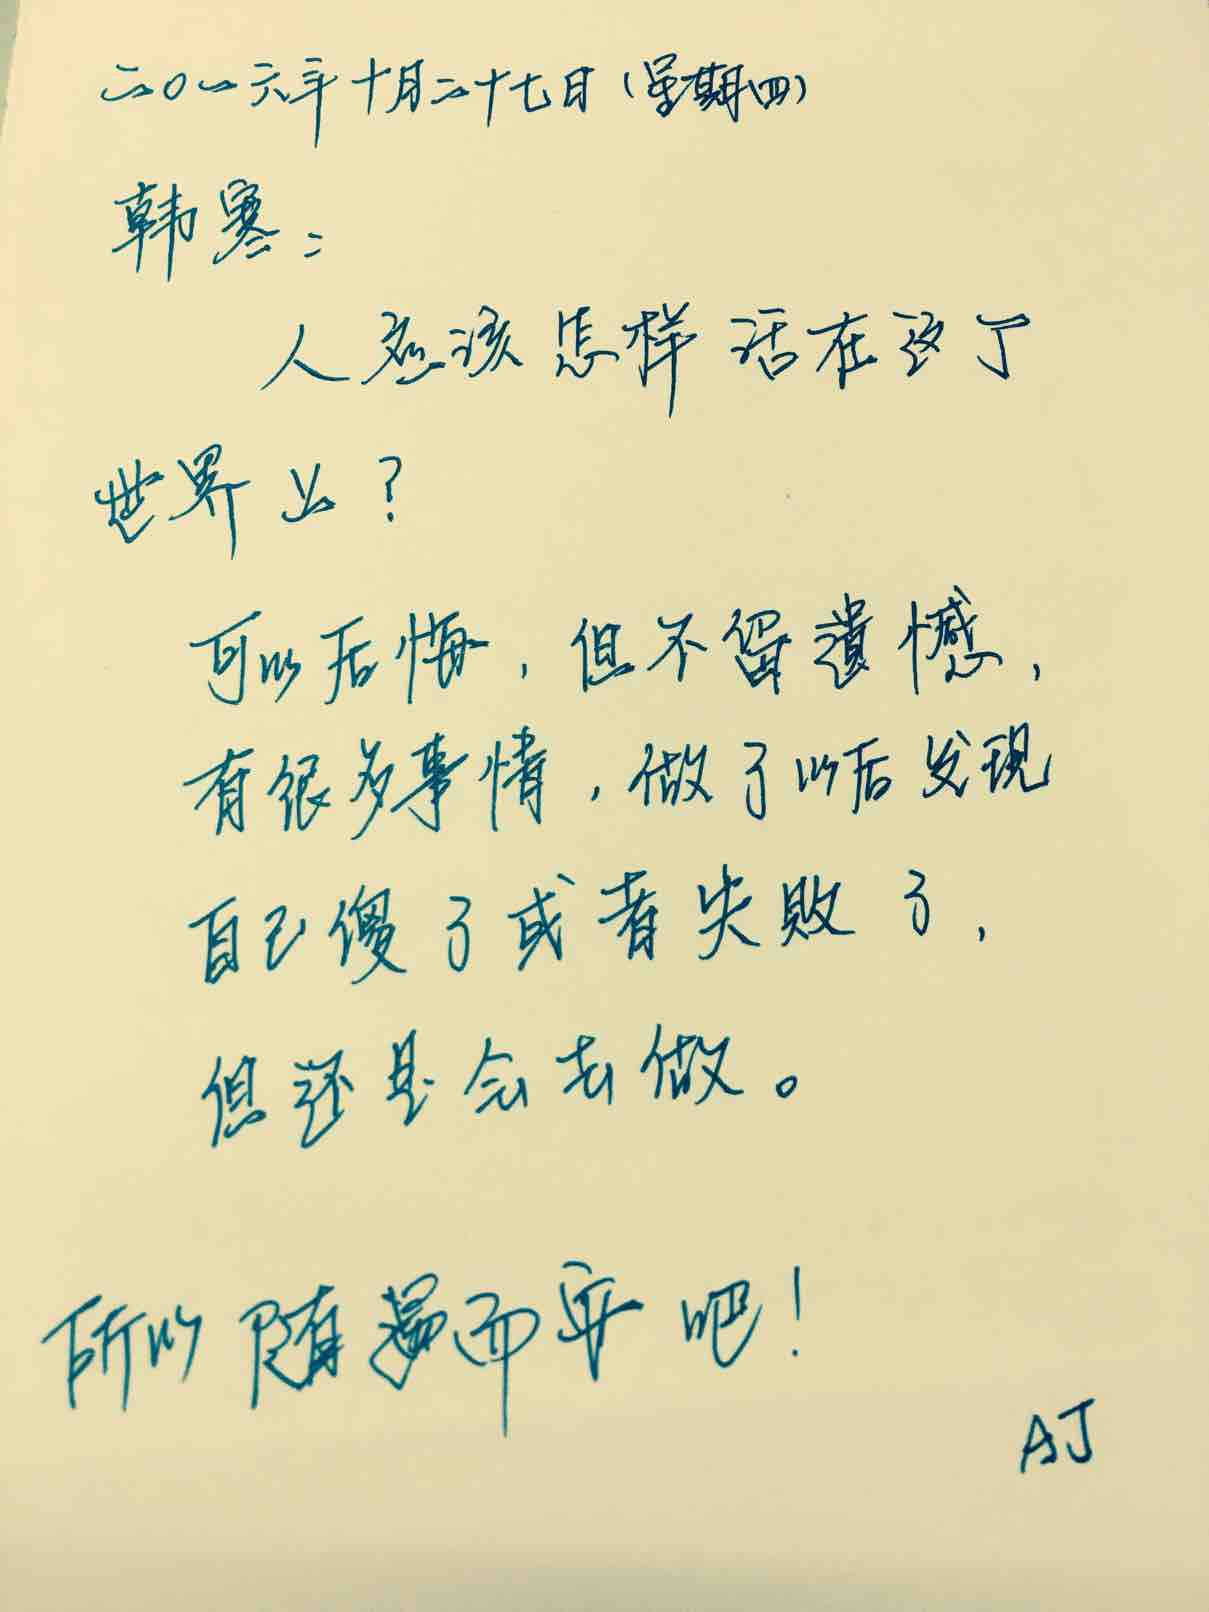 二〇一六年十月二十七日（星期四）
韩寒：
人应该怎样活在这个
世界上？
可以后悔，但不留遗憾，
有很多事情，做了以后发现
自己傻了或者失败了，
但还是会去做。
所以随遇而安吧！
AJ